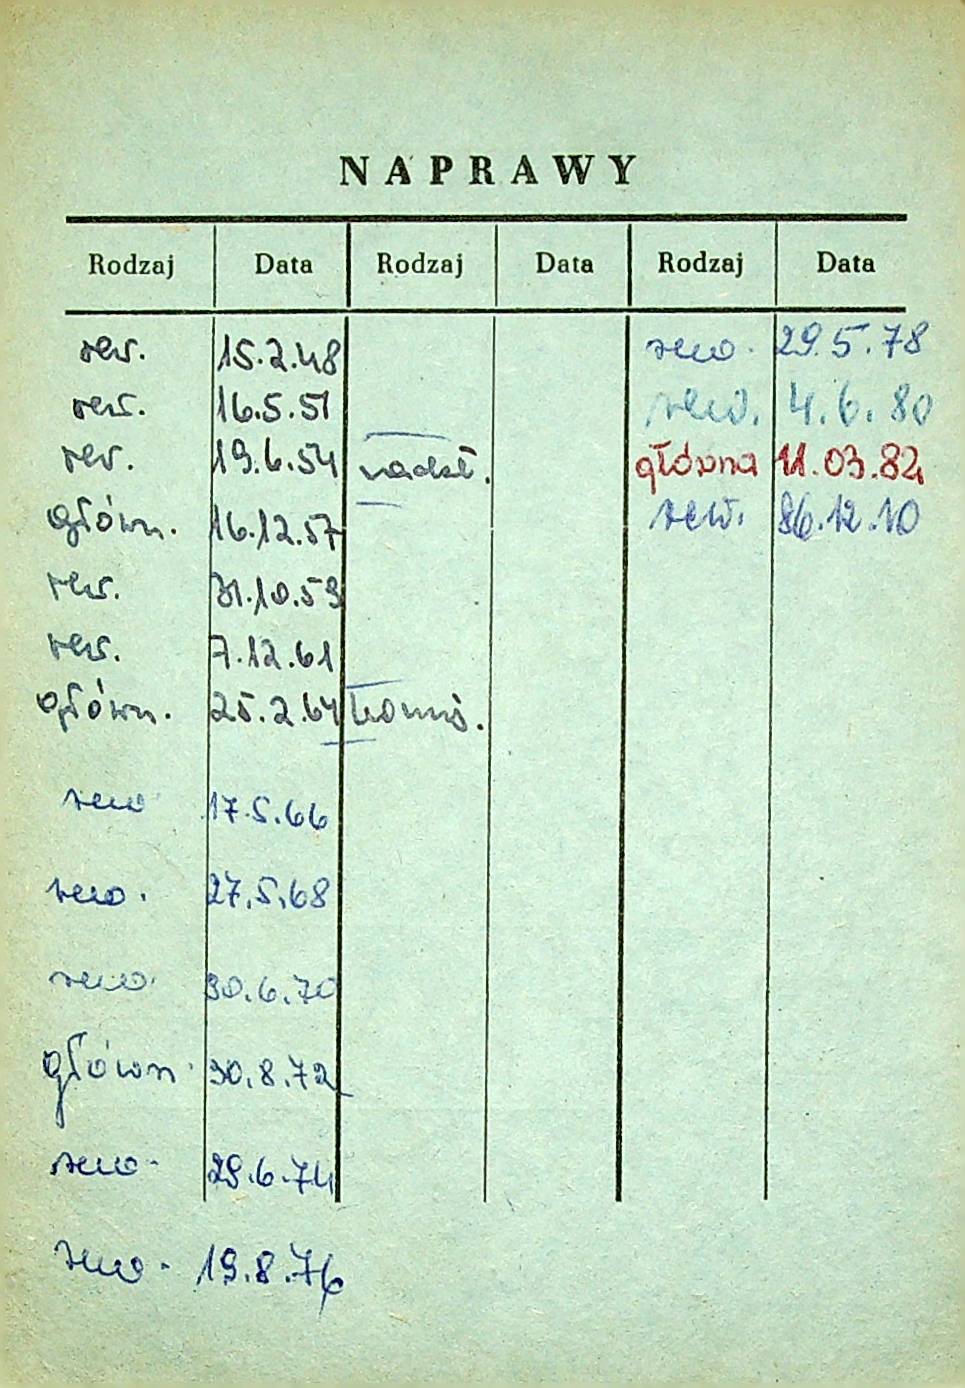 NAPRAWY
Rodzaj Data Rodzaj Data Rodzaj Data
rew. 15.2.48 rew. 29.5.78
rew. 16.5.51 rew. 4.6.80
rew. 19.6.54 główna 11.03.82
główn. 16.12.57 rew. 86.12.10
rew. 31.10.59
rew. 7.12.61
główn. 25.2.64
rew 17.5.66
rew. 27.5.68
rew. 30.6.70
główn. 30.8.72
rew. 29.6.74
rew. 19.8.76